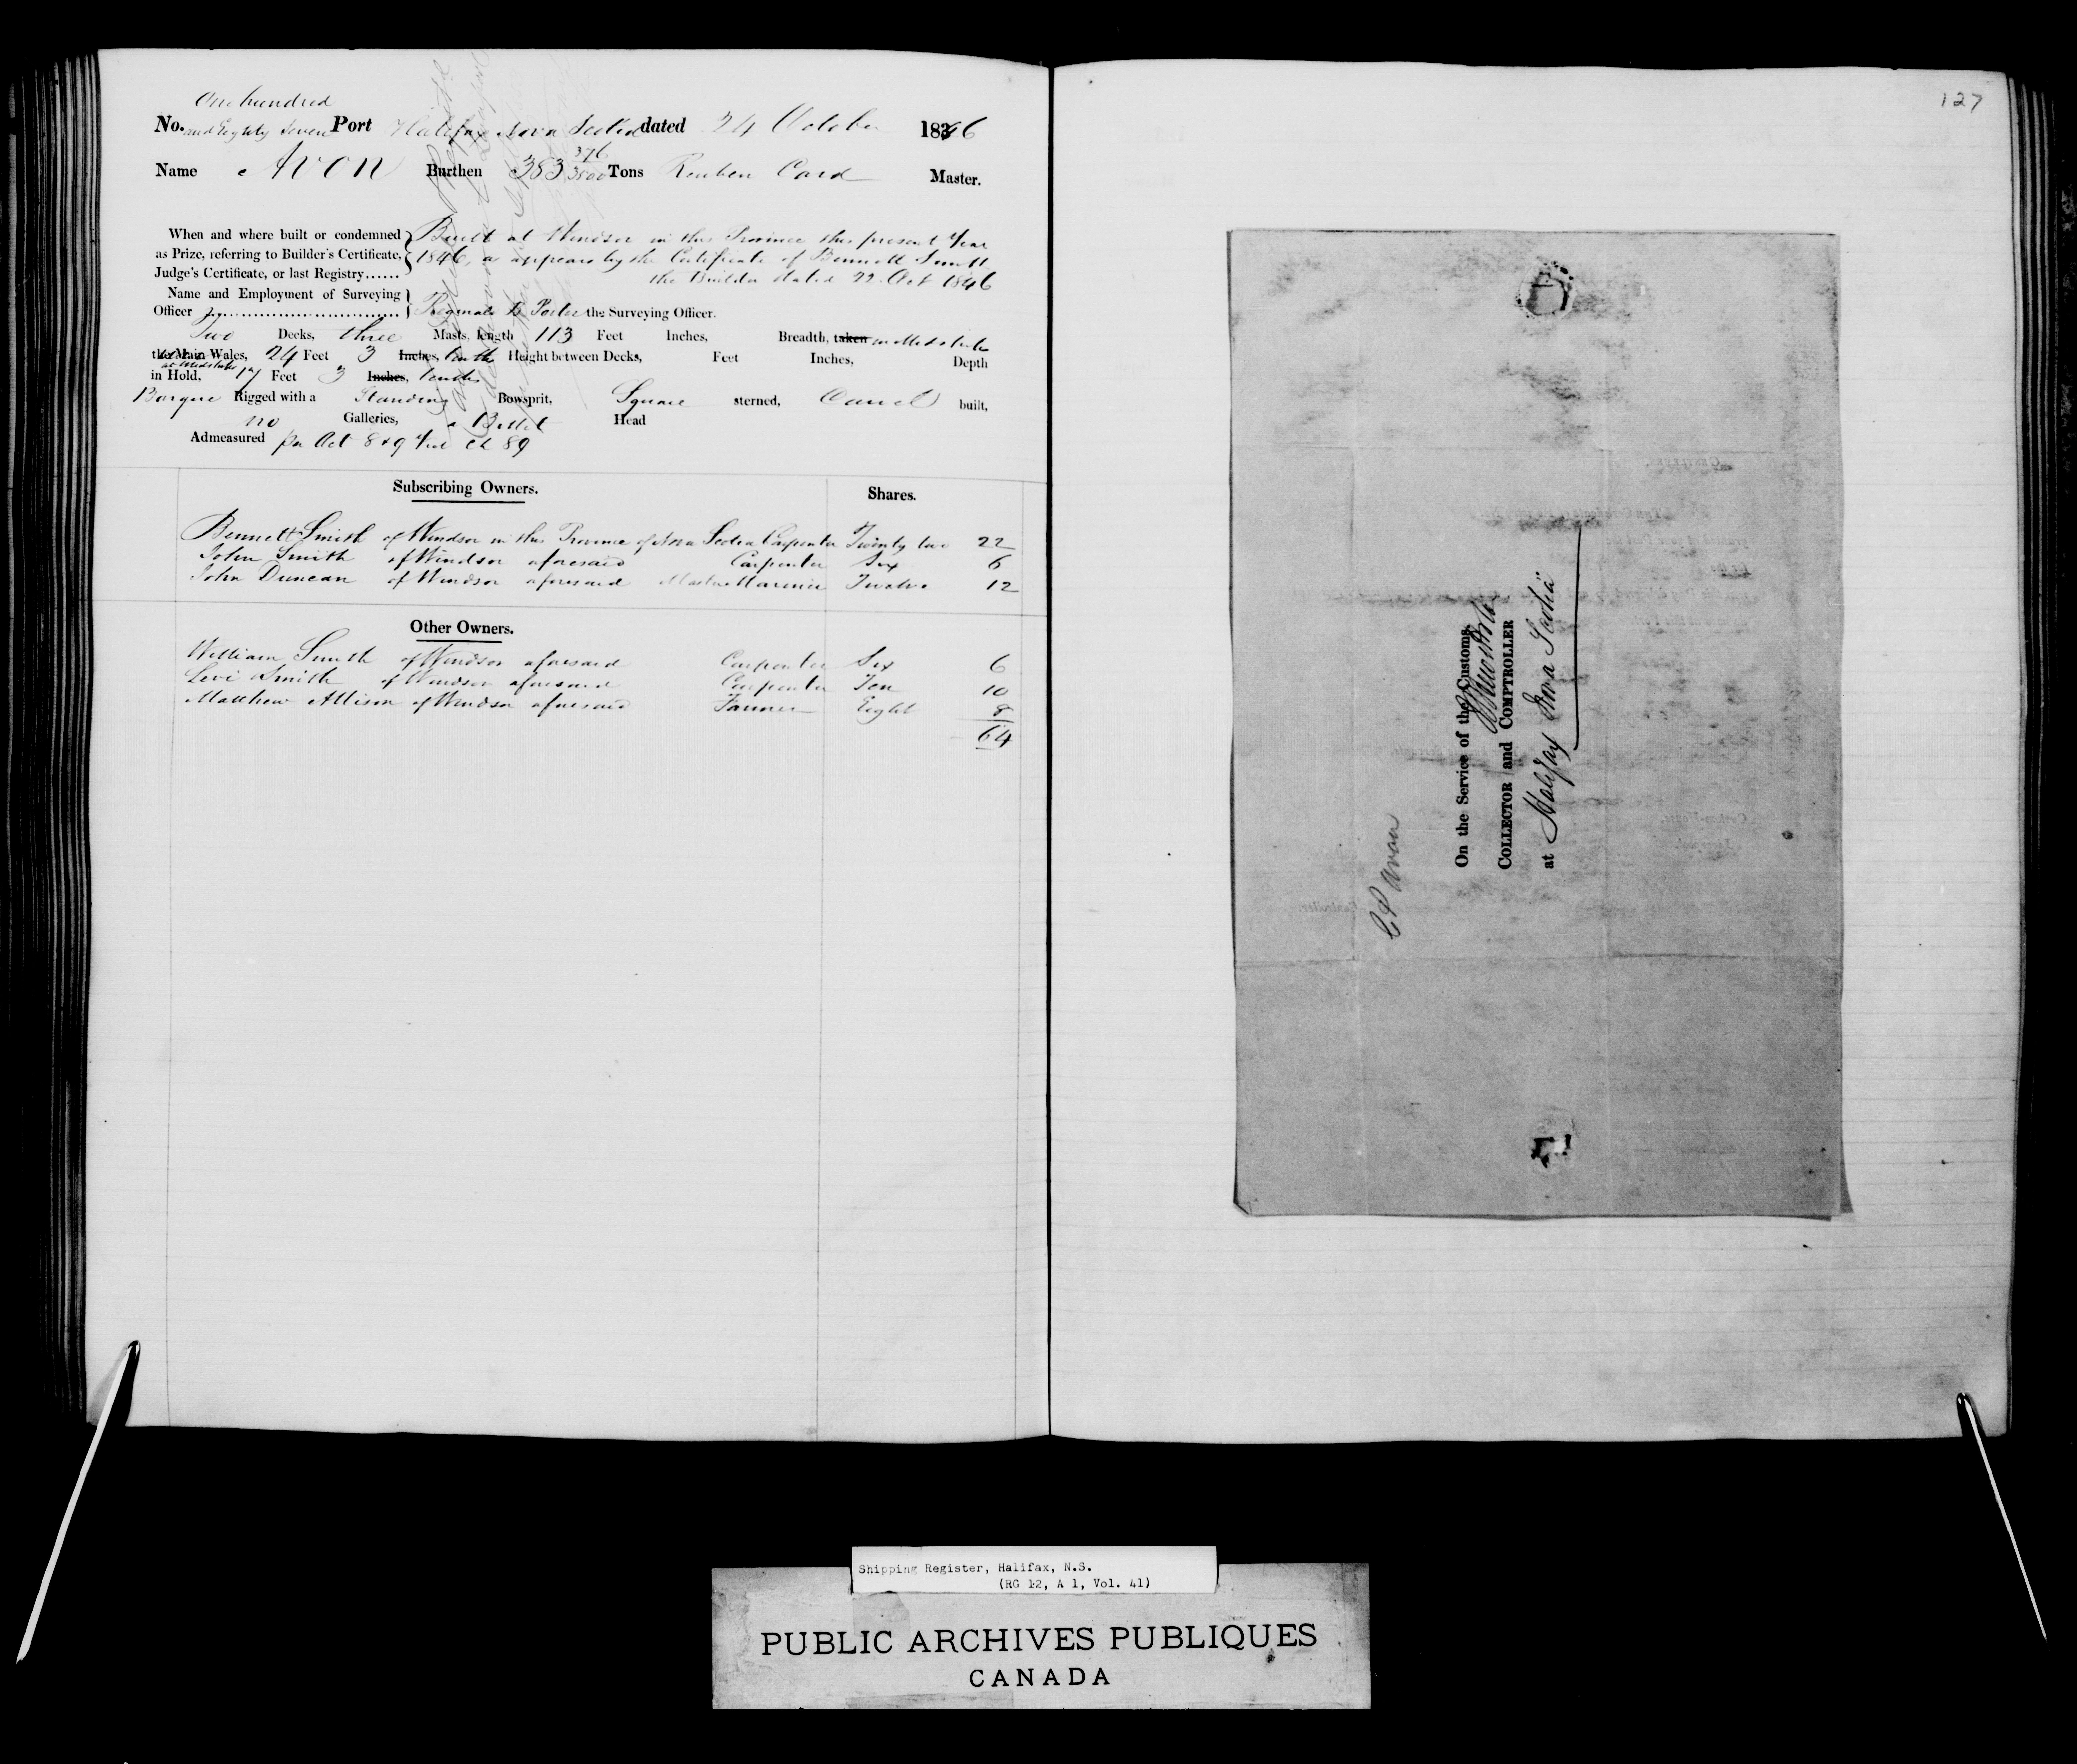 One hundred
No. and Eighty Seven Port Halifax Nova Scotia dated 24 October 1846
Name Avon Burthen 383 376/3500 Tons Reuben Card Master.
When and where built or condemned as Prize, referring to Builder's Certificate, Judge's Certificate, or last Registry......
Built at Windsor in this Province this present Year
1846, as appears by the Certificate of Bennett Smith
the Builder dated 22 Oct 1846
Name and Employment of Surveying Officer
Reginald B Porter the Surveying Officer.
Two Decks, three Masts, length 113 Feet Inches, Breadth, taken
the Main Wales, 24 Feet 3 Inches, tenths Height between Decks, Feet Inches, Depth
in Hold, at Midships 17 Feet 3 Inches, tenths
Barque Rigged with a Standing Bowsprit, Square sterned, Carvel built,
no Galleries, a Billet Head
Admeasured per Act 8 & 9 Vic Ch 89
Subscribing Owners. Shares.
Bennett Smith of Windsor in this Province of Nova Scotia Carpenter Twenty two 22
John Smith of Windsor aforesaid Carpenter Six 6
John Duncan of Windsor aforesaid Master Mariner Twelve 12
Other Owners.
William Smith of Windsor aforesaid Carpenter Six 6
Levi Smith of Windsor aforesaid Carpenter Ten 10
Matthew Allison of Windsor aforesaid Farmer Eight 8
64
127
On the Service of the Customs.
COLLECTOR and COMPTROLLER
at Halifax Nova Scotia
Avon
Shipping Register, Halifax, N.S.
(RG 12, A 1, Vol. 41)
PUBLIC ARCHIVES PUBLIQUES
CANADA